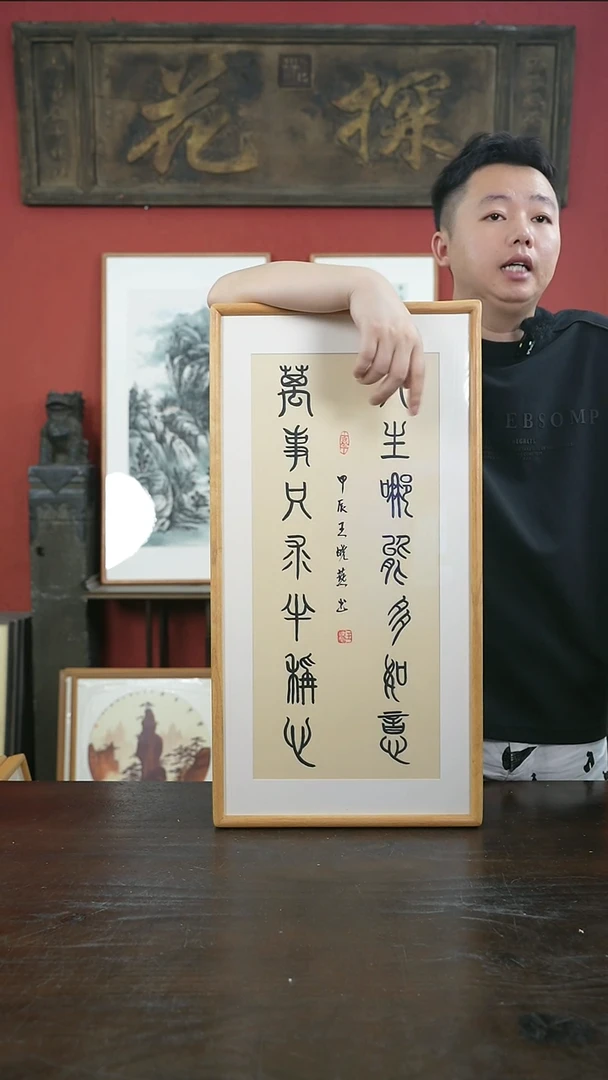 探花
人生哪能多如意
萬事只求半稱心
甲辰王晓燕书
EBSOMP